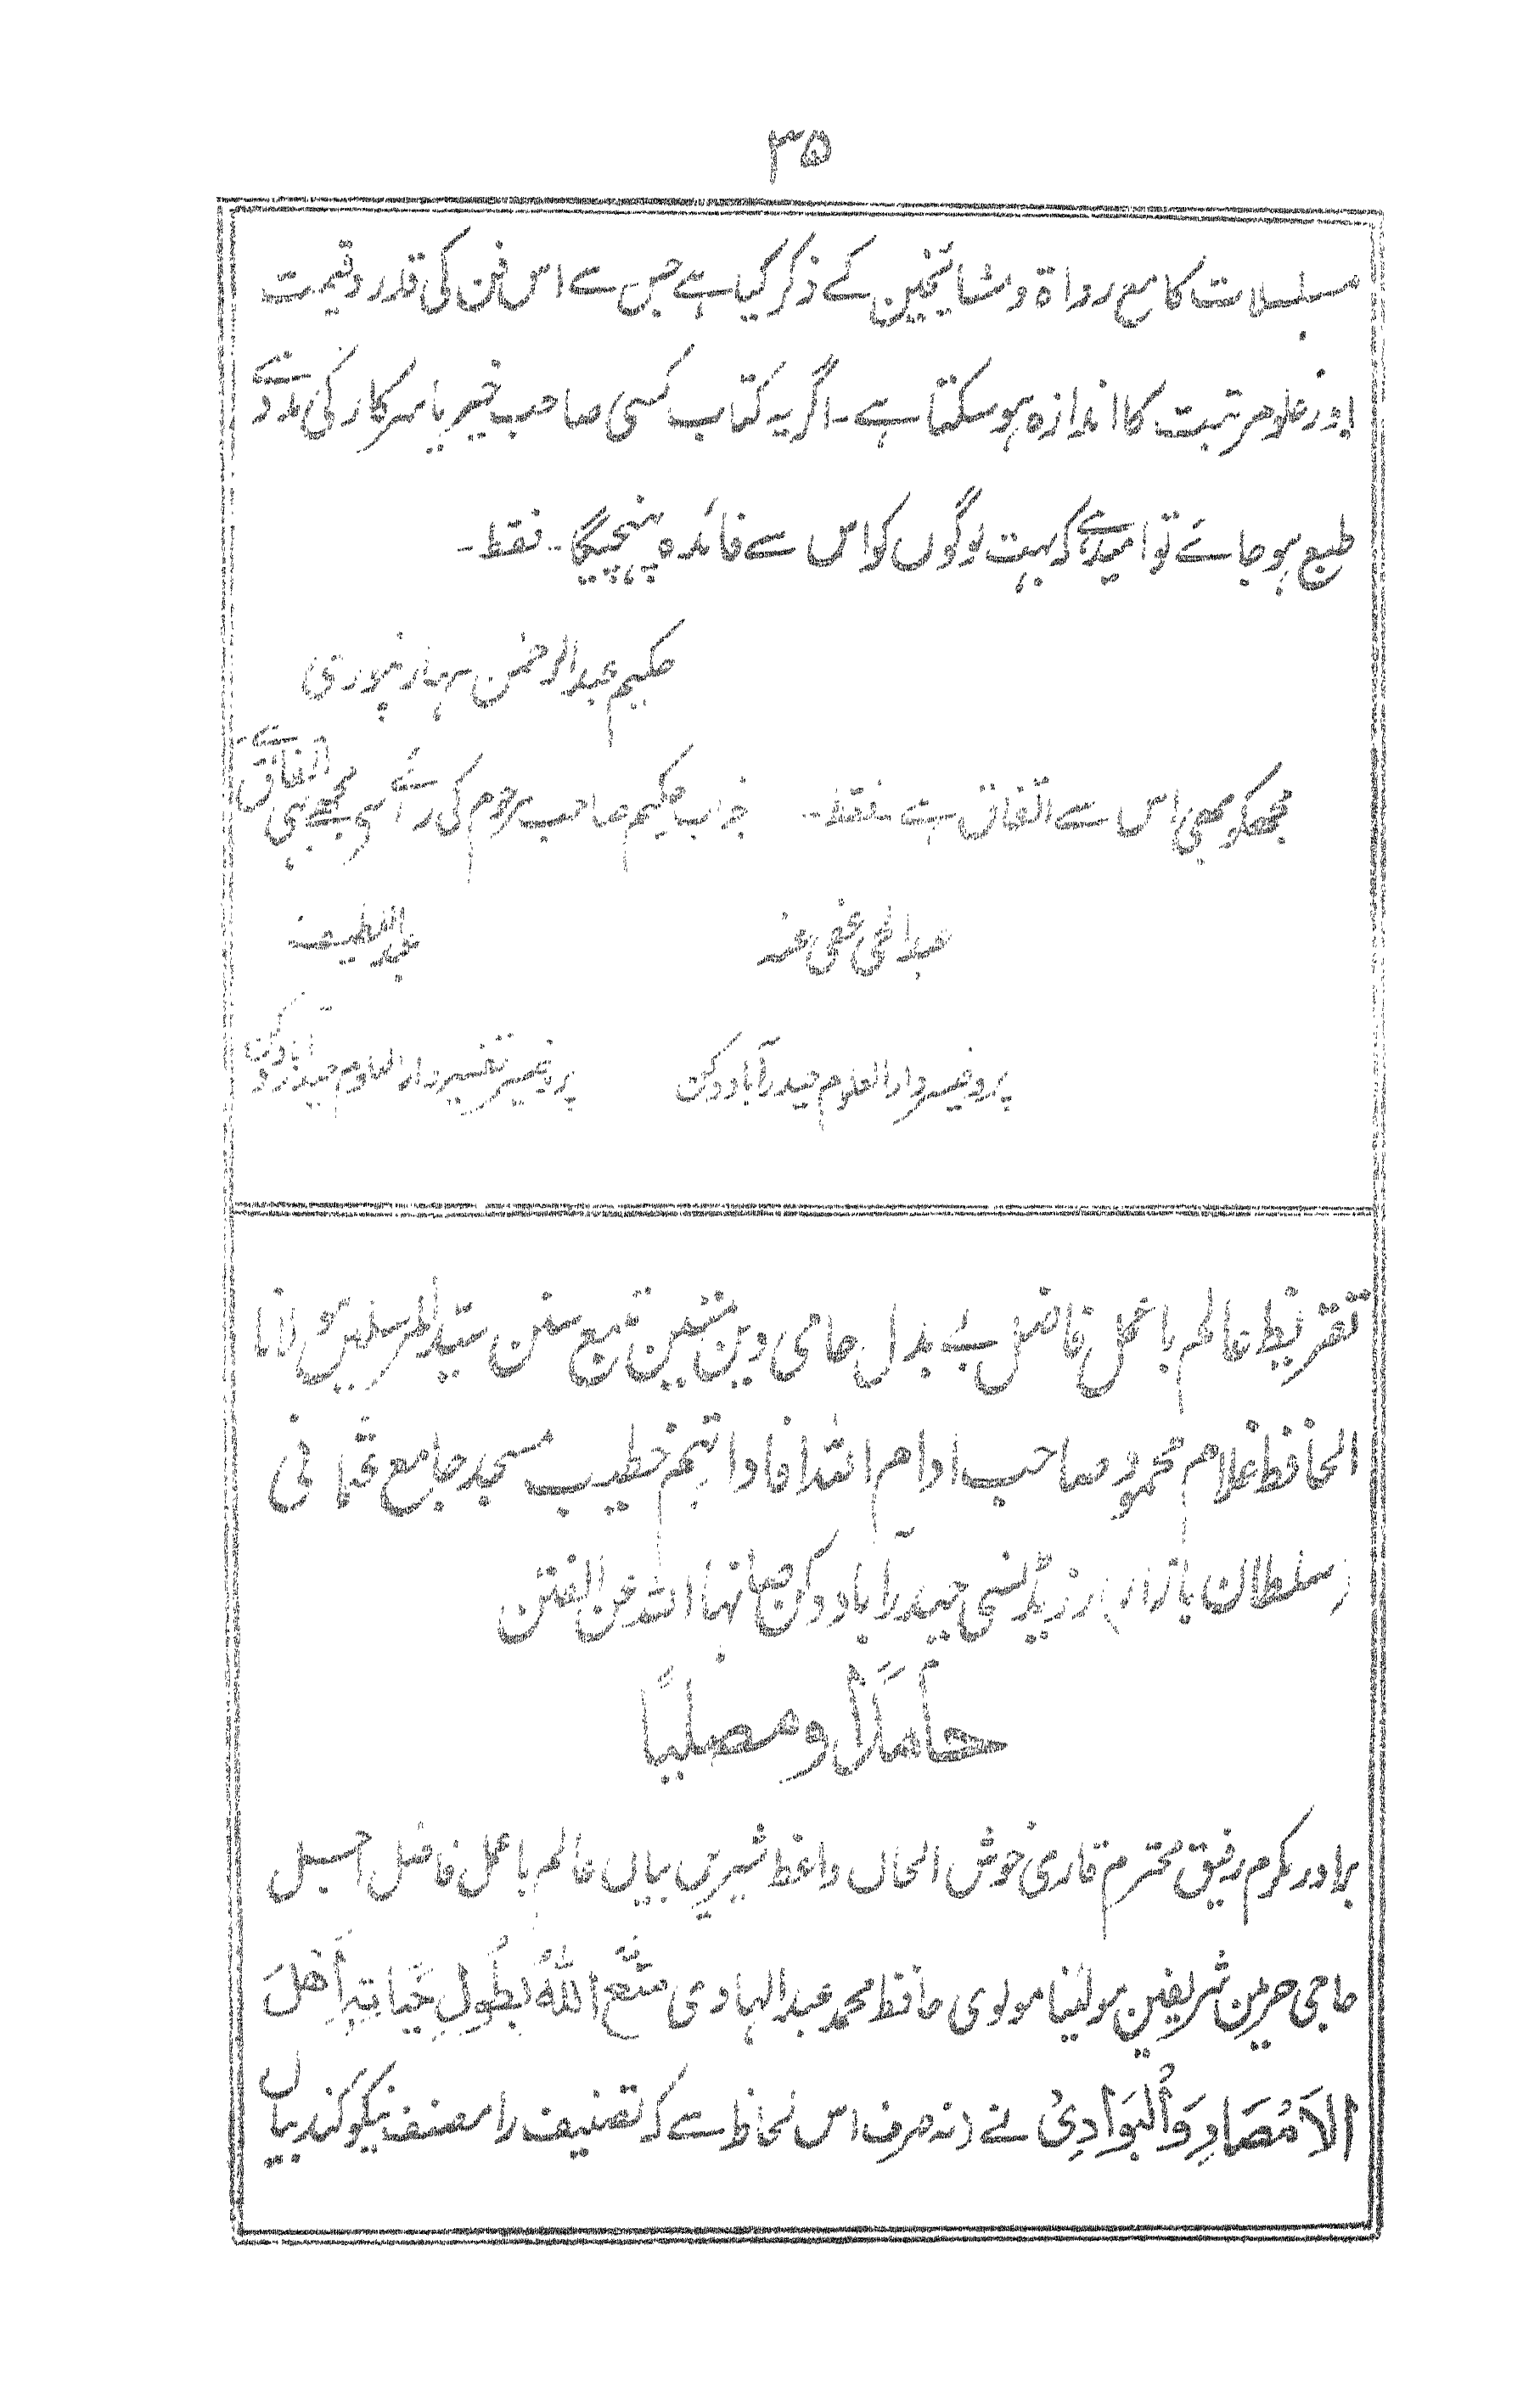 ۳۵
مسلسلات کا مع رواۃ و مشائخین کے ذکر کیا ہے جس سے اس فن کی قدر و قیمت
اور علو مرتبت کا اندازہ ہو سکتا ہے۔ اگر یہ کتاب کسی صاحب خیر یا سرکار کی مدد سے
طبع ہو جائے تو امید ہے کہ بہت لوگوں کو اس سے فائدہ پہنچیگا۔ فقط۔
حکیم عبدالرحمن سہارنپوری
مجھکو بھی اس سے اتفاق ہے۔ فقط۔ جناب حکیم صاحب مرحوم کی رائے سے مجھے بھی اتفاق ہے۔
عبدالحی عفی عنہ عبداللطیف
پروفیسر دارالعلوم حیدرآباد دکن پروفیسر تفسیر دارالعلوم حیدرآباد دکن
تقریظ عالم باعمل فاضل بے بدل حامی دین متین متبع سنن سید المرسلین مولانا
الحافظ غلام محمود صاحب ادام اللہ افاداتہم خطیب مسجد جامع عثمانی
(سلطان بازار) رزیڈنسی حیدرآباد دکن صانہا اللہ عن الفتن
حامدًا و مصلیًا
برادر مکرم رفیق محترم قاری خوش الحال واعظ شیریں بیاں عالم باعمل فاضل
حاجی حرمین شریفین مولٰینا مولوی حافظ محمد عبدالہادی مَتَّعَ اللّٰہُ بِطُولِ حَیَاتِہٖ اَھْلَ
الْاَمْصَارِ وَالْبَوَادِیْ نے (نہ صرف اس لحاظ سے کہ تصنیف را مصنف نیکو کند بیاں